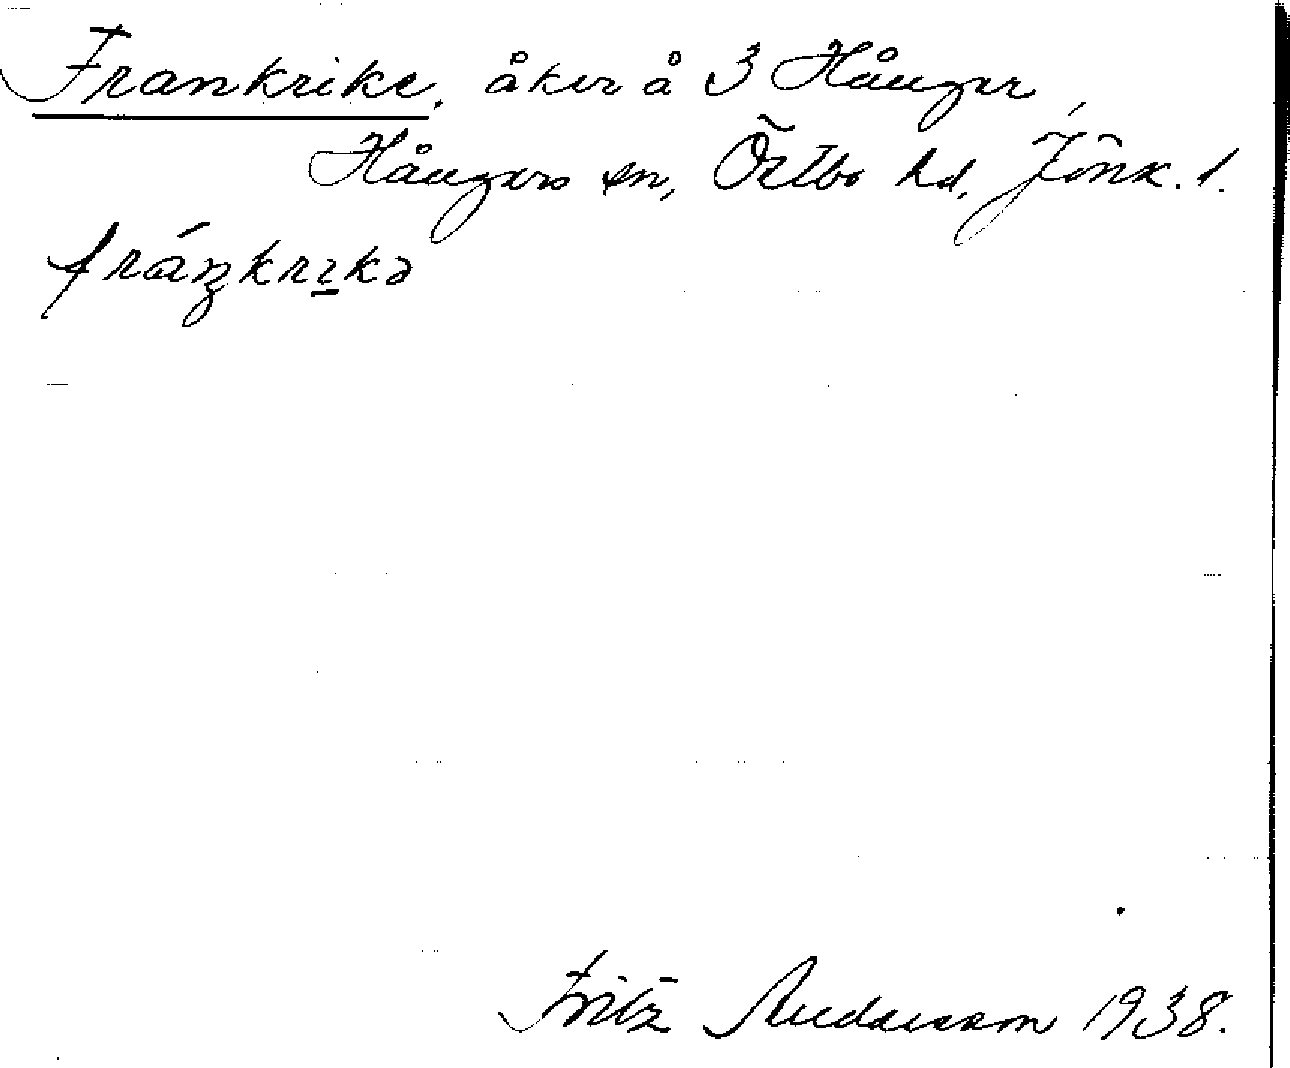 Frankrike, åker å 3 Hånger,
Hångers sn, Östbo hd, Jönk. l.
fráŋkrı̲kə
Fritz Andersson 1938.